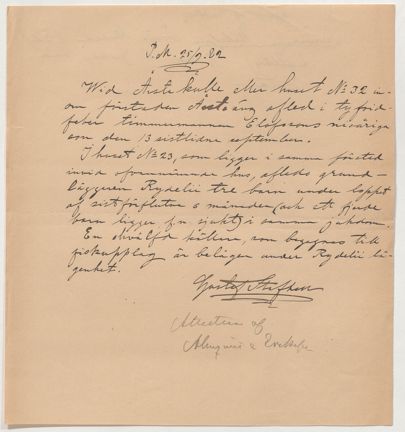 P.M. 25/9 82
Wid Årstakulle eller huset № 32 in-
om förstaden Årstaäng afled i tyfoid-
feber timmermannen Elofssons nioårige
son den 13 sistlidne september.
I huset № 23, som ligger i samma förstad
invid ofvannämnde hus, afledo grund-
läggaren Rydelii tre barn under loppet
af sistförflutne 6 månader (och ett fjerde
barn ligger nu sjukt) i samma sjukdom.
En hvälfd källare, som begagnas till
fiskupplag är belägen under Rydelii lä-
genhet.
Gustaf
af
Almqvist &